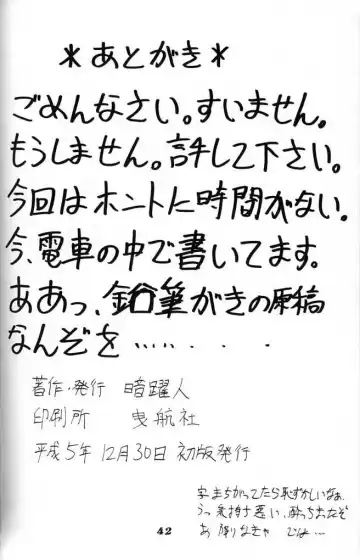 *あとがき*
ごめんなさい。すいません。
もうしません。許して下さい。
今回はホントに時間がない。
今、電車の中で書いてます。
ああっ、鉛筆がきの原稿
なんぞを……‥・・・
著作・発行 暗躍人
印刷所 曳航社
平成5年12月30日 初版発行
字まちがってたら恥ずかしいなぁ
うっ気持ち悪い、酔っちまったぞ
あ 降りなきゃ では…
42